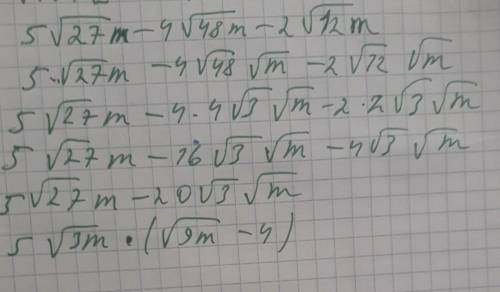 5√27 m - 4√48m - 2√12m
5·√27 m - 4√48 √m - 2√12 √m
5 √27 m - 4·4√3 √m - 2·2√3 √m
5 √27 m - 16√3 √m - 4√3 √m
5√27 m - 20√3 √m
5 √3m · (√9m - 4)